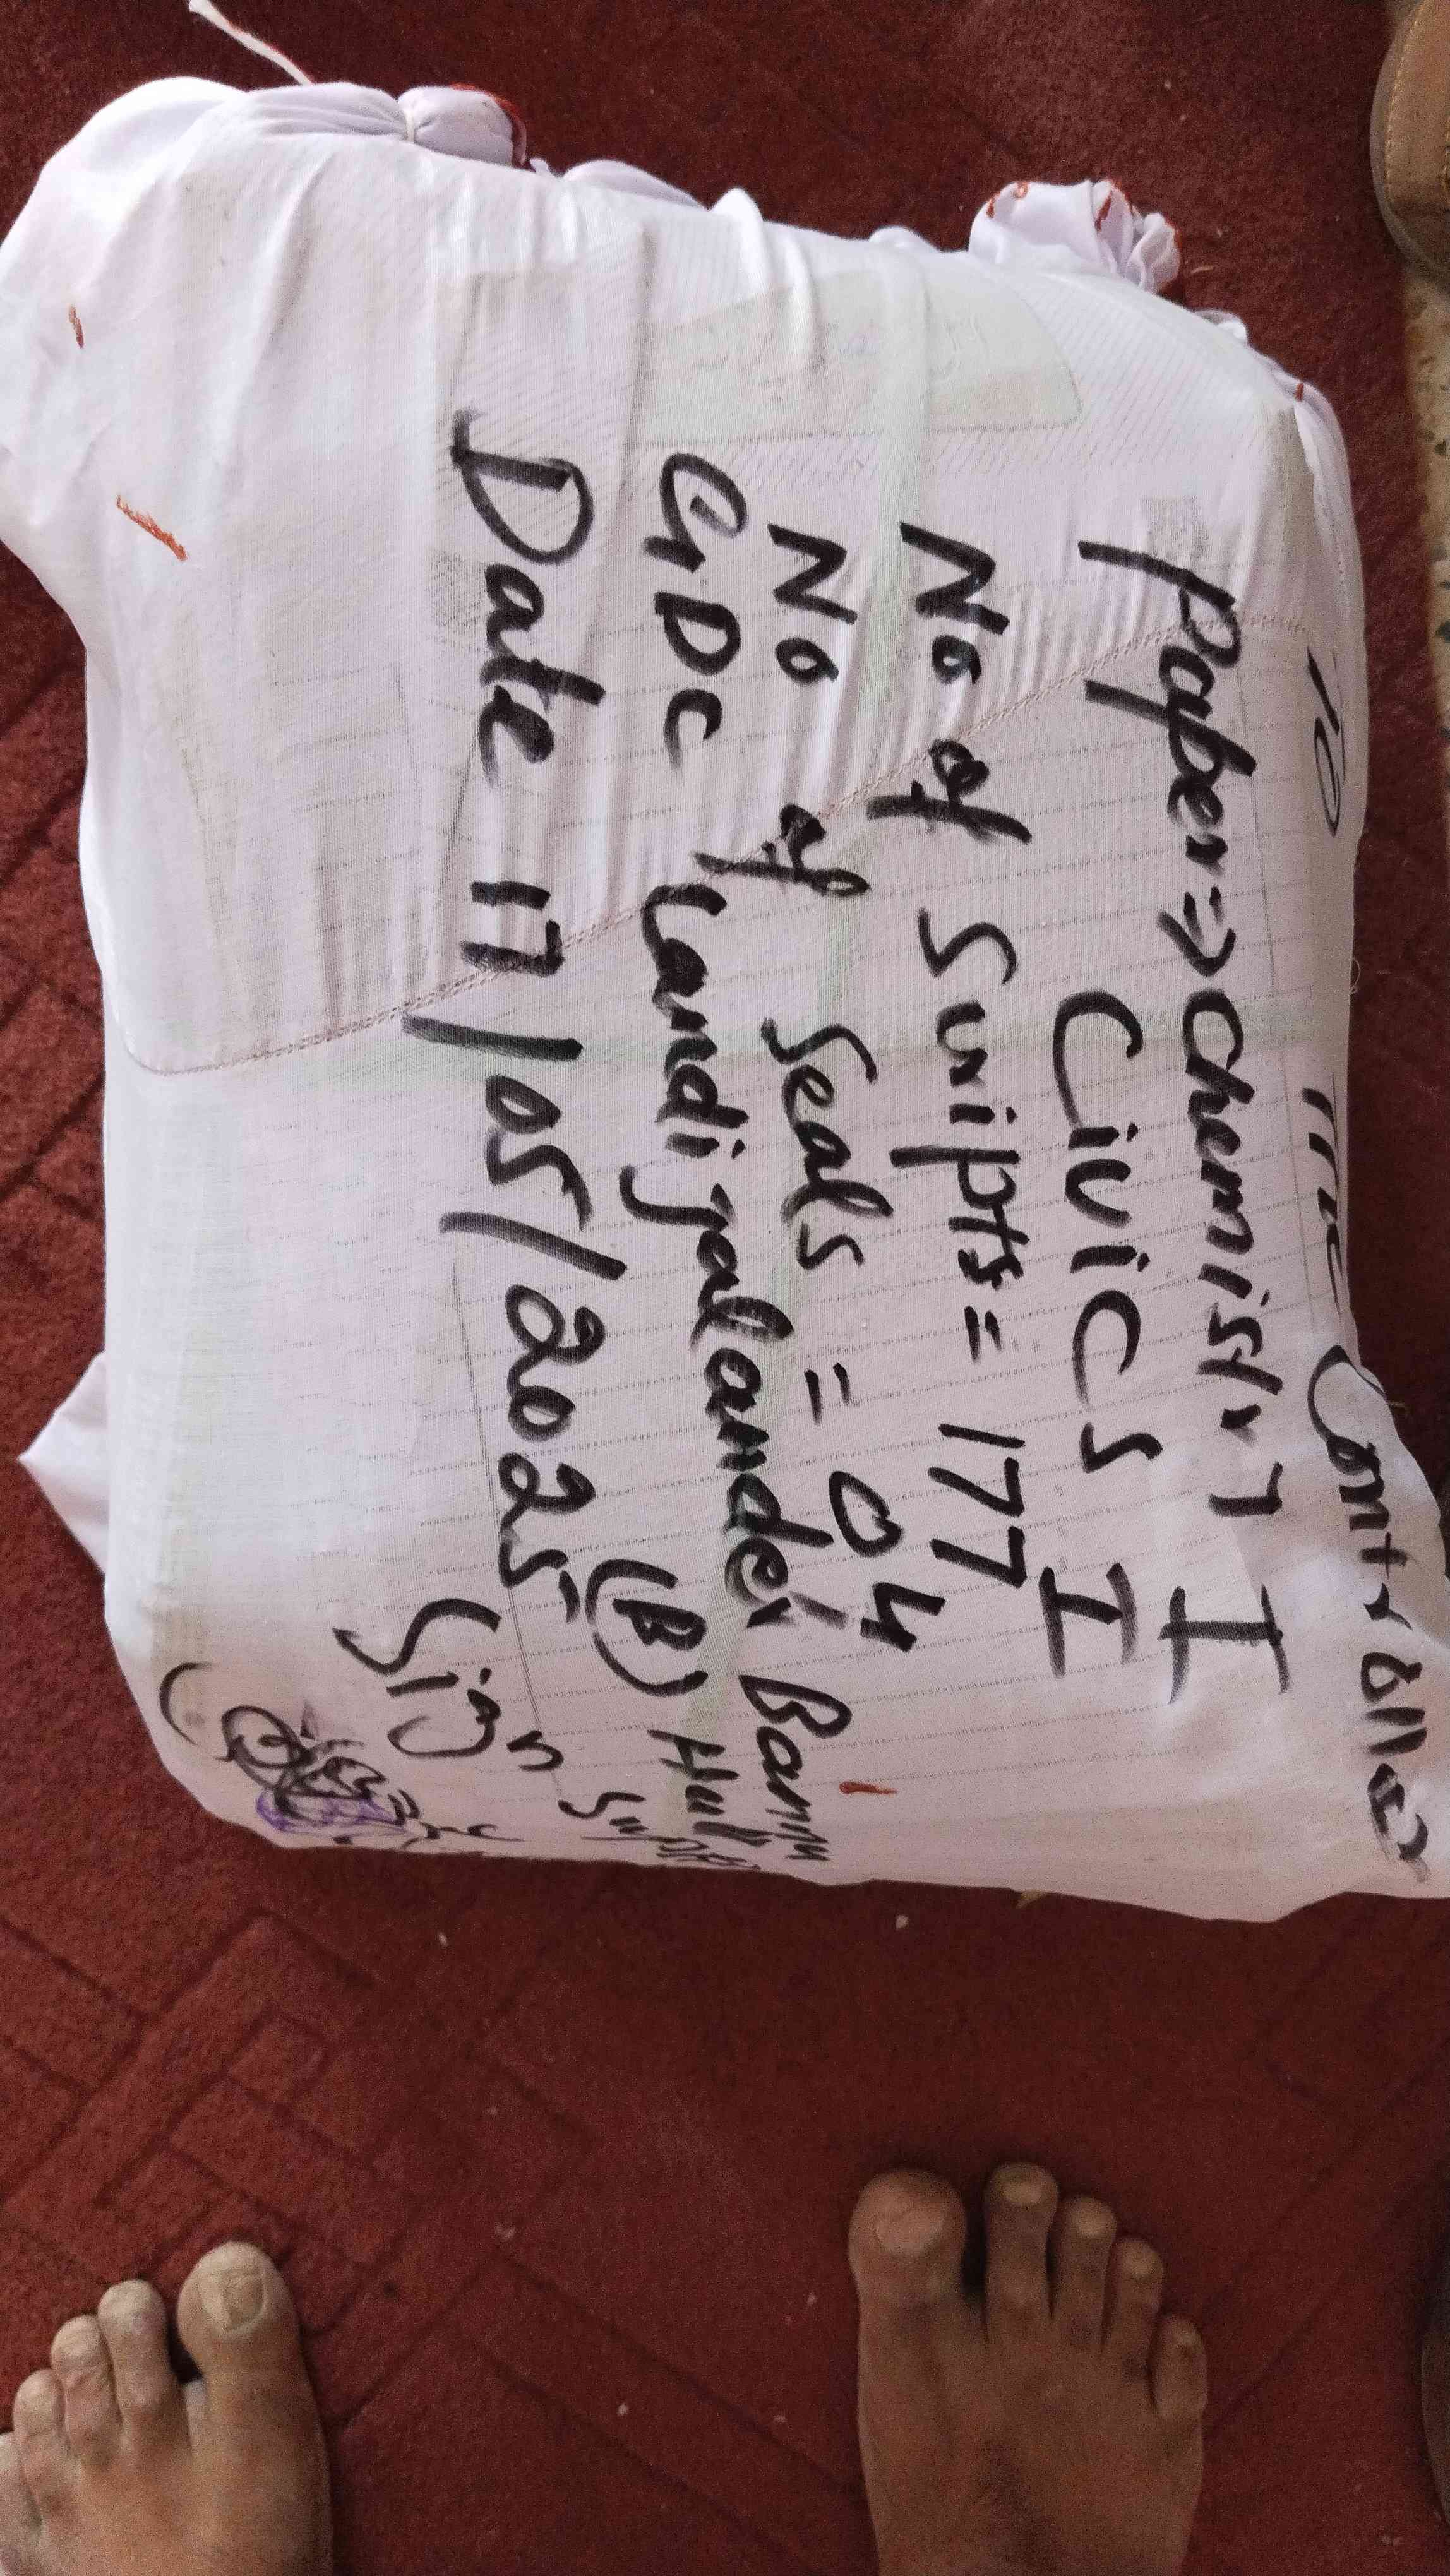 To The Controller
Paper => Chemistry I
Civics I
No of Scripts = 177
No of Seals = 04
GDC Landi Jalander Bannu
(B) Hall
Date 17/05/2025
Sign Supdt